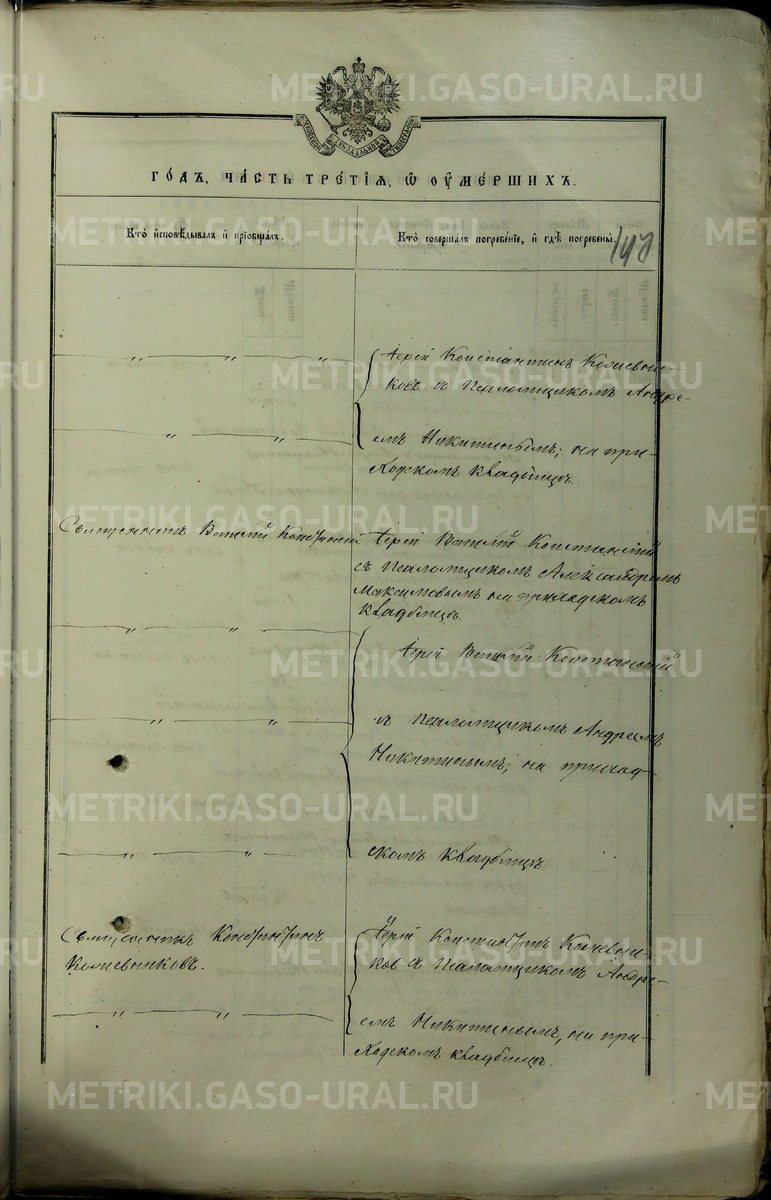 METRIKI.GASO-URAL.RU
ГО́ДЪ, ЧА́СТЬ ТРЕ́ТІѦ, Ѿ ОУМЕ́РШИХЪ.
Кто̀ и҆сповѣ́дывалъ и҆ прїѻбща́лъ.
Кто̀ соверша́лъ погребе́нїе, и҆ гдѣ̀ погребены̀.
Іерей Константинъ Кожевни-
ковъ съ Псаломщикомъ Андре-
емъ Никитинымъ; на при-
ходскомъ кладбищѣ.
Священникъ Виталій
Іерей Виталій
съ Псаломщикомъ Александромъ
Максимовымъ на приходскомъ
кладбищѣ.
Іерей Виталій
съ Псаломщикомъ Андреемъ
Никитинымъ; на приход-
скомъ кладбищѣ.
Священникъ Константинъ
Кожевниковъ.
Іерей Константинъ Кожевни-
ковъ съ Псаломщикомъ Андре-
емъ Никитинымъ, на при-
ходскомъ кладбищѣ.